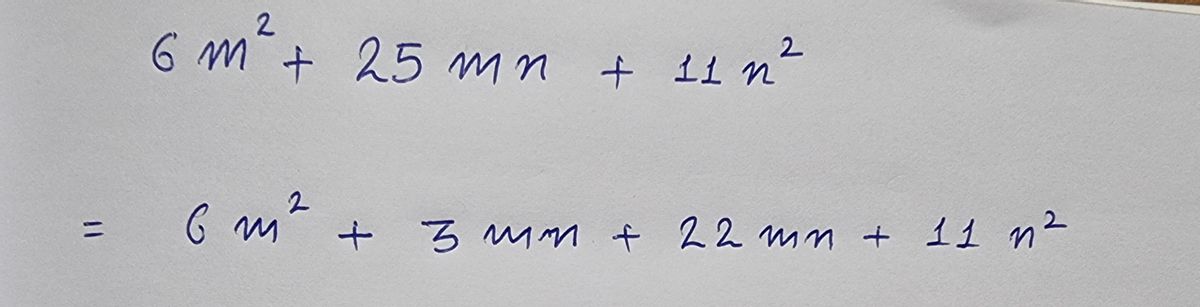 6 m² + 25 mn + 11 n²
= 6 m² + 3 mn + 22 mn + 11 n²